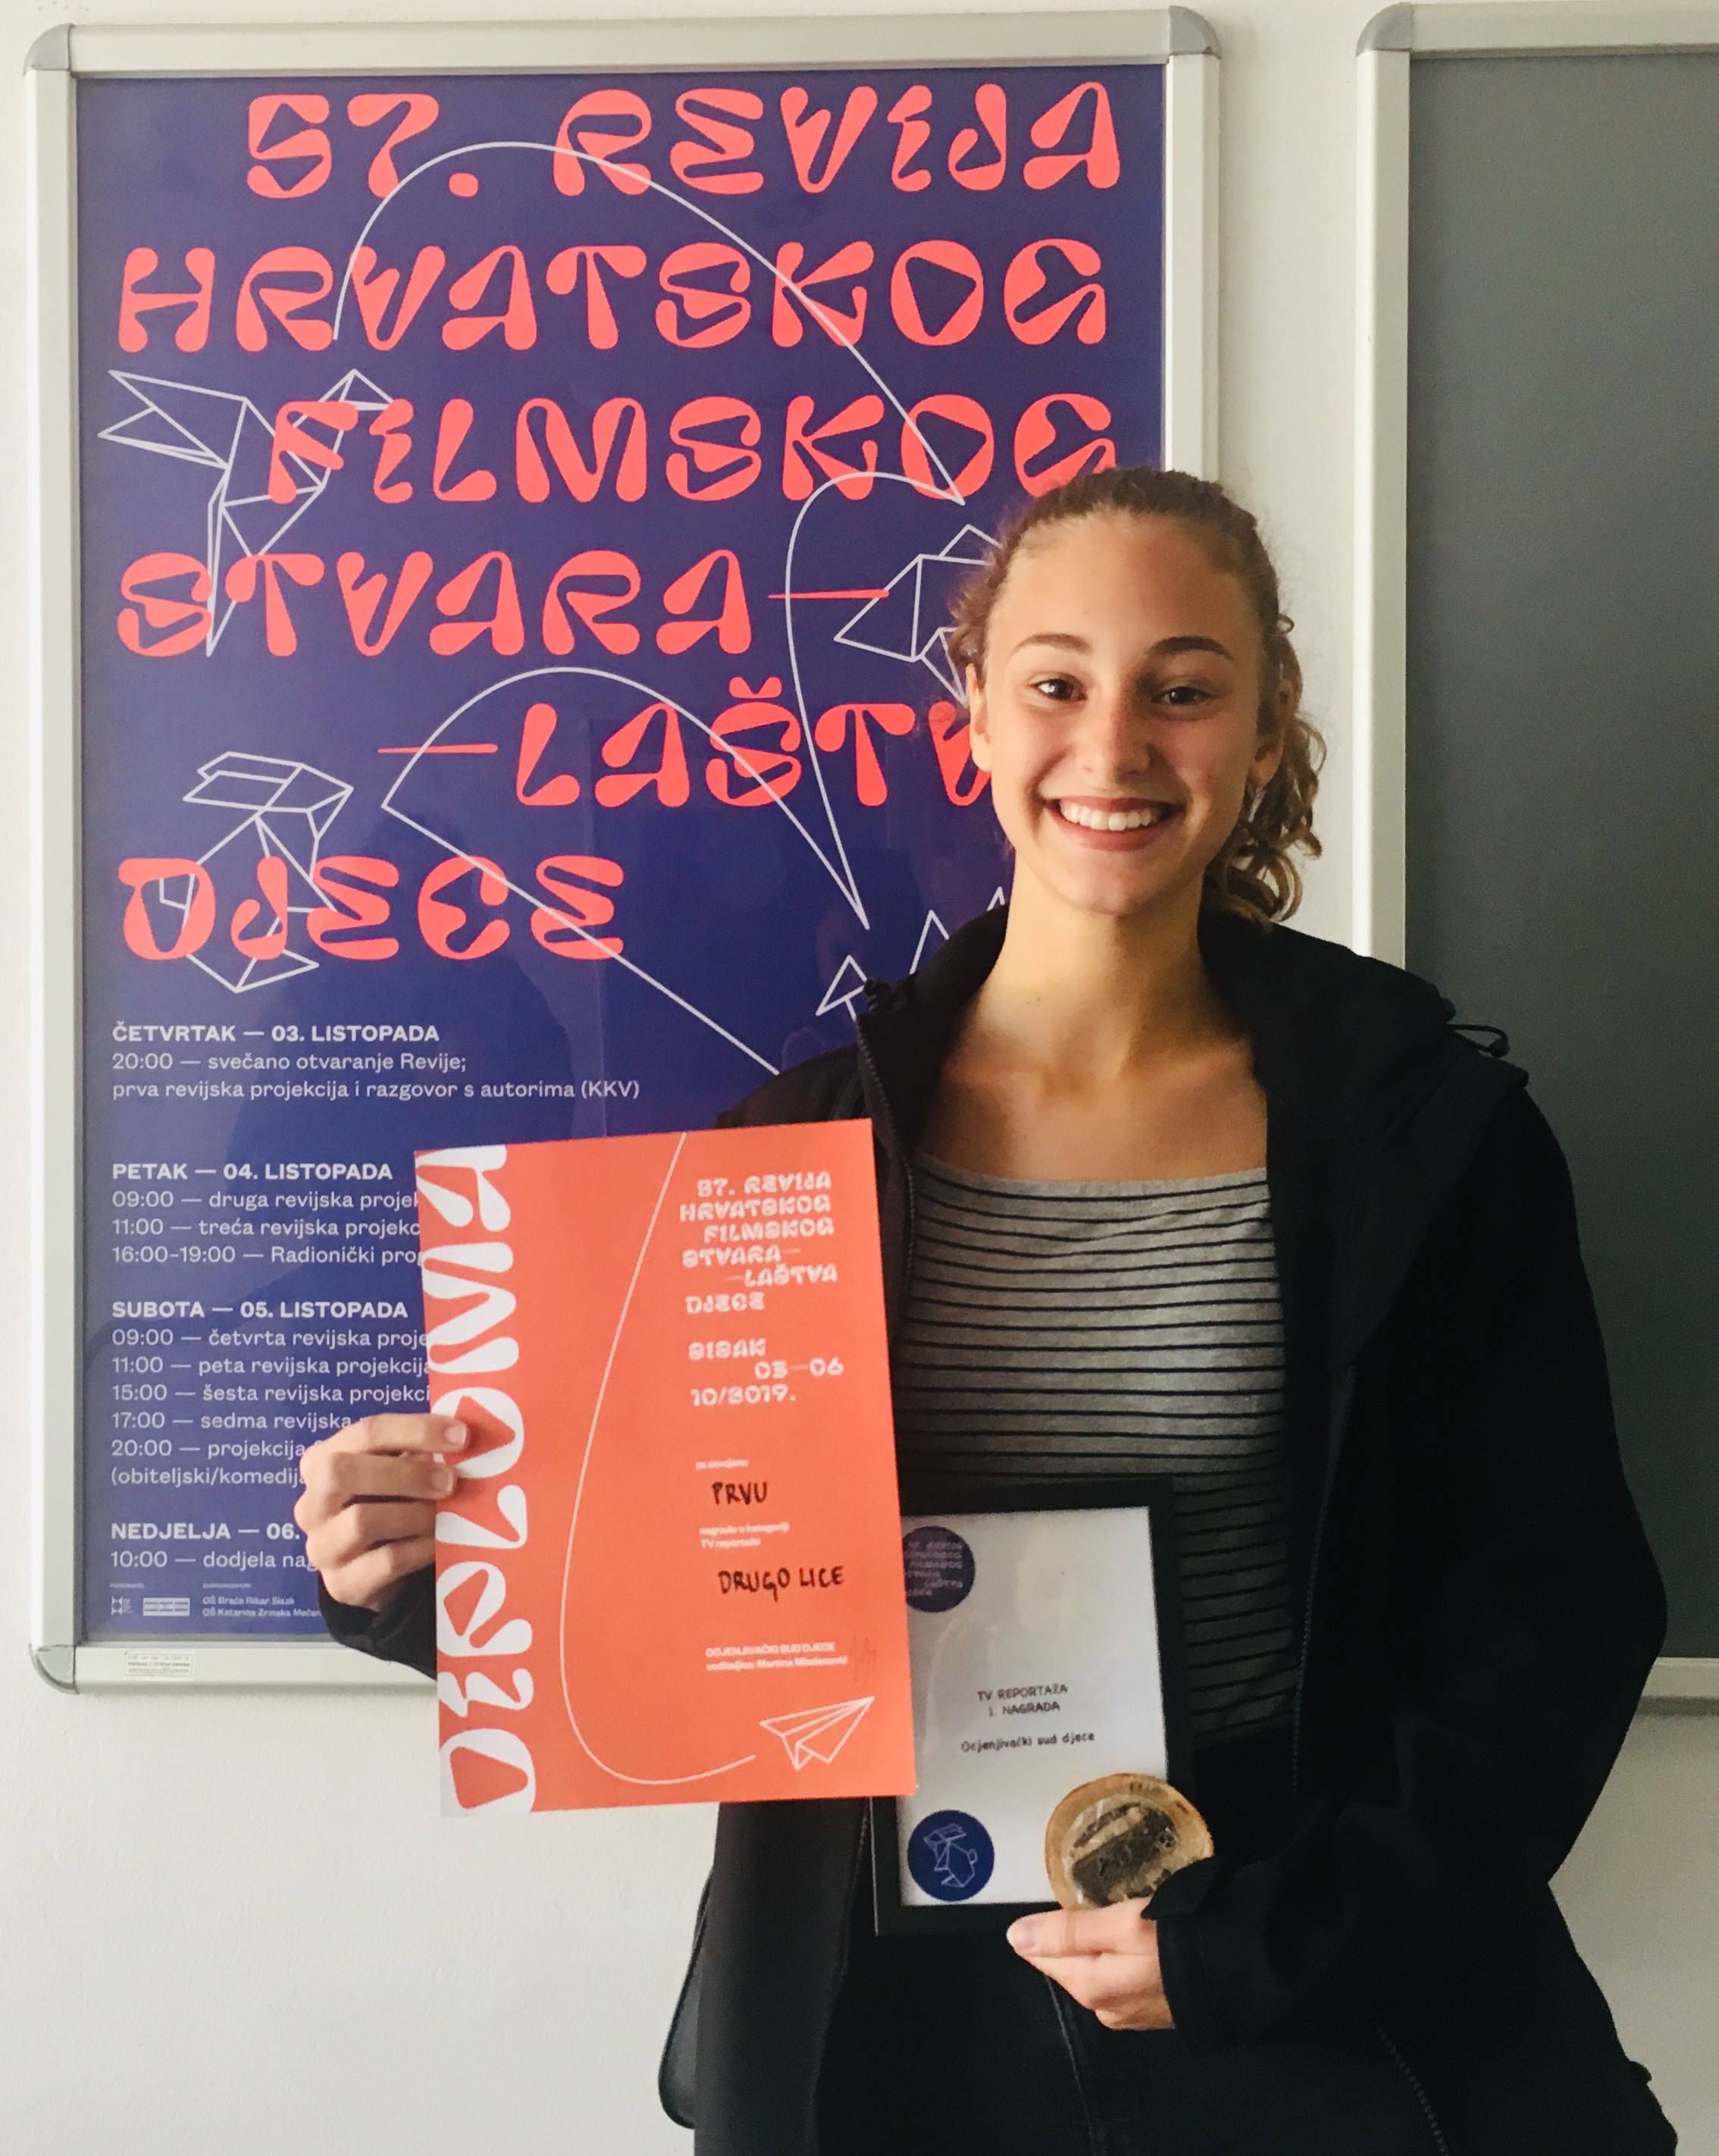 57. REVIJA
HRVATSKOG
FILMSKOG
STVARA—
—LAŠTV
DJECE
ČETVRTAK — 03. LISTOPADA
20:00 — svečano otvaranje Revije;
prva revijska projekcija i razgovor s autorima (KKV)
PETAK — 04. LISTOPADA
09:00 — druga revijska
11:00 — treća revijska
16:00-19:00 — Radionički
SUBOTA — 05. LISTOPADA
09:00 — četvrta revijska
11:00 — peta revijska projekcija
15:00 — šesta revijska
17:00 — sedma revijska
20:00 — projekcija
(obiteljski/
NEDJELJA — 06.
10:00 — dodjela
OŠ Braća Ribar Sisak
OŠ Katarina Zrinska
DIPLOMA
57. REVIJA
HRVATSKOG
FILMSKOG
STVARA—
—LAŠTVA
DJECE
SISAK
03—06
10/2019.
za osvojenu
PRVU
nagradu u kategoriji
TV reportaže
DRUGO LICE
OCJENJIVAČKI SUD DJECE
voditeljica: Martina
TV REPORTAŽA
1. NAGRADA
Ocjenjivački sud djece